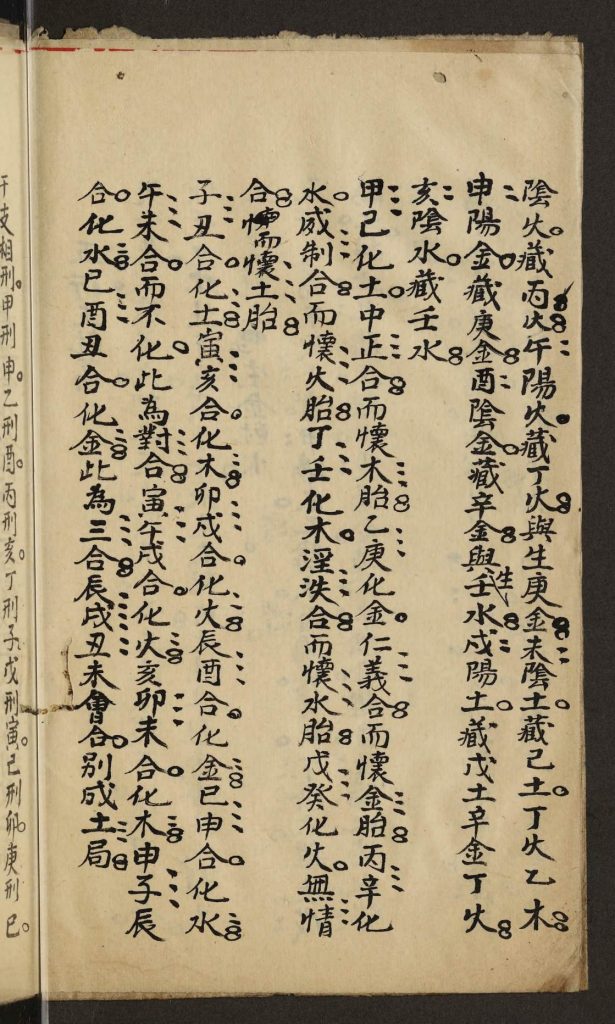 陰火藏丙火午陽火藏丁火與生庚金未陰土藏己土丁火乙木
申陽金藏庚金酉陰金藏辛金與生壬水戌陽土藏戊土辛金丁火
亥陰水藏壬水
甲己化土中正合而懷木胎乙庚化金仁義合而懷金胎丙辛化
水威制合而懷火胎丁壬化木淫泆合而懷水胎戊癸化火無情
合而懷土胎
子丑合化土寅亥合化木卯戌合化火辰酉合化金巳申合化水
午未合而不化此為對合寅午戌合化火亥卯未合化木申子辰
合化水巳酉丑合化金此為三合辰戌丑未會合別成土局
干支相刑甲刑申乙刑酉丙刑亥丁刑子戊刑寅己刑卯庚刑巳